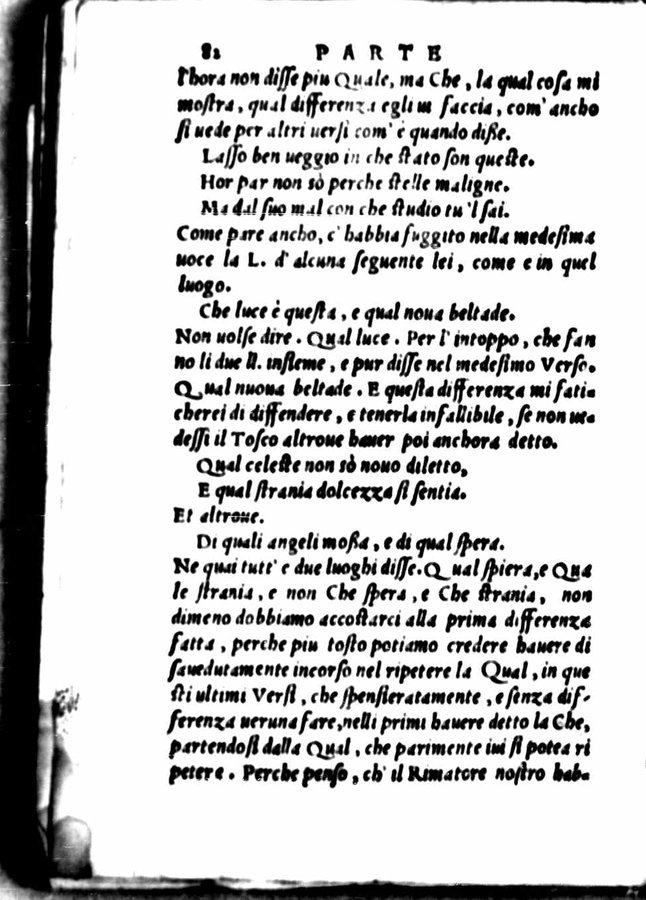 82 PARTE
l'hora non disse piu Quale, ma Che, la qual cosa mi
mostra, qual differenza egli ui faccia, com' ancho
si uede per altri uersi com' è quando disse.
Lasso ben ueggio in che stato son queste.
Hor par non sò perche stelle maligne.
Ma dal suo mal con che studio tu 'l sai.
Come pare ancho, c' habbia fuggito nella medesima
uoce la L. d' alcuna seguente lei, come e in quel
luogo.
Che luce è questa, e qual noua beltade.
Non uolse dire. Qual luce. Per l' intoppo, che fan
no li due ll. insieme, e pur disse nel medesimo Verso.
Qual nuoua beltade. E questa differenza mi fati
cherei di diffendere, e tenerla infallibile, se non ue
dessi il Tosco altroue hauer poi anchora detto.
Qual celeste non sò nouo diletto,
E qual strania dolcezza si sentia.
Et altroue.
Di quali angeli mossa, e di qual spera.
Ne quai tutt' e due luoghi disse. Qual spiera, e Qua
le strania, e non Che spera, e Che strania, non
dimeno dobbiamo accostarci alla prima differenza
fatta, perche piu tosto potiamo credere hauere di
sauedutamente incorso nel ripetere la Qual, in que
sti ultimi Versi, che spensieratamente, e senza dif-
ferenza ueruna fare, nelli primi hauere detto la Che,
partendosi dalla Qual, che parimente iui si potea ri
petere. Perche penso, ch' il Rimatore nostro hab-